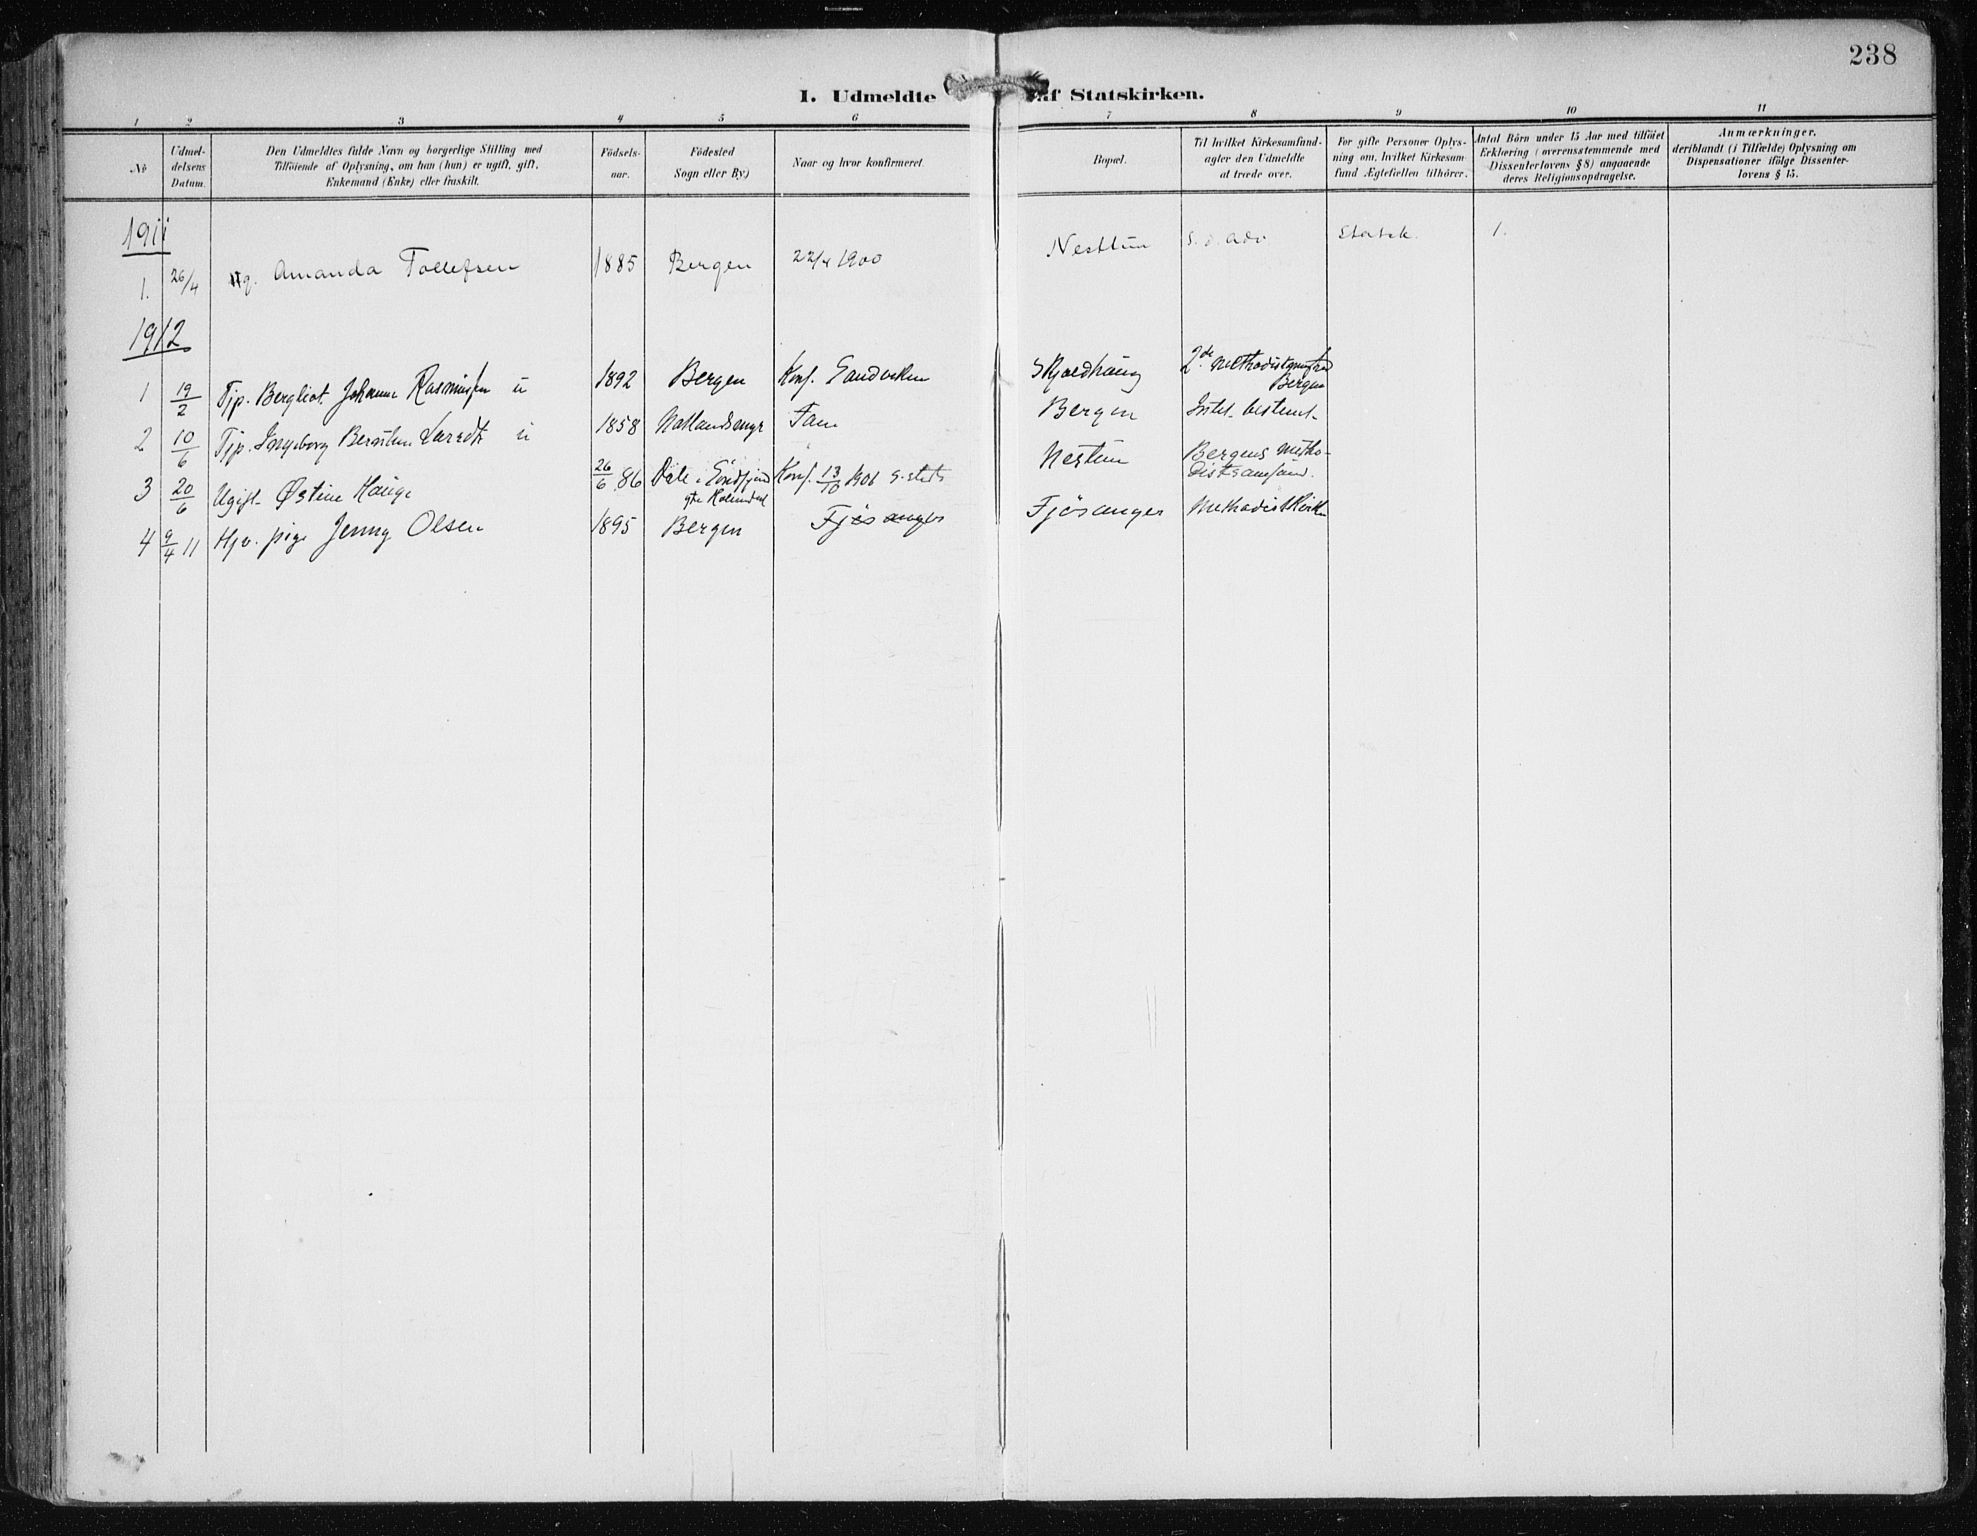 238
I. Udmeldte af Statskirken.
1 2 3 4 5 6 7 8 9 10 11
No
Udmel-
delsens
Datum.
Den Udmeldtes fulde Navn og borgerlige Stilling med
Tilföiende af Oplysning, om han (hun) er ugift, gift,
Enkemand (Enke) eller fraskilt.
Födsels-
aar.
Födested
Sogn eller By)
Naar og hvor konfirmeret.
Bopæl.
Til hvilket Kirkesamfund-
agter den Udmeldte
at træde over.
For gifte Personer Oplys-
ning om, hvilket Kirkesam-
fund Ægtefællen tilhörer.
Antal Börn under 15 Aar med tilföiet
Erklæring (overensstemmende med
Dissenterlovens § 8) angaaende
deres Religionsopdragelse.
Anmærkninger.
deriblandt (i Tilfælde) Oplysning om
Dispensationer ifölge Dissenter-
lovens § 15.
1911
1. 26/4 g. Amanda Tollefsen 1885 Bergen 22/4 1900 Nesttun S. d. adv Statsk. 1.
1912
1 19/2 Tjp. Bergliot Johanne Rasmussen u 1892 Bergen Konf. Sandviken Skjoldhaug 2de Methodistmenighed
Bergen
2 10/6 Tjp. Ingeborg u 1858 Natlandsmyr Fane Bergen Intet bestemt
3 20/6 Ugift Østine Hauge 26/6 86 Dale i Söndfjord Konf. 13/10 1901 s. steds Nestun Bergens Metho-
distsamfund.
4 9/4 11 Hjv. pige Jenny Olsen 1895 Bergen Fjösanger Fjösanger Methodistkirken